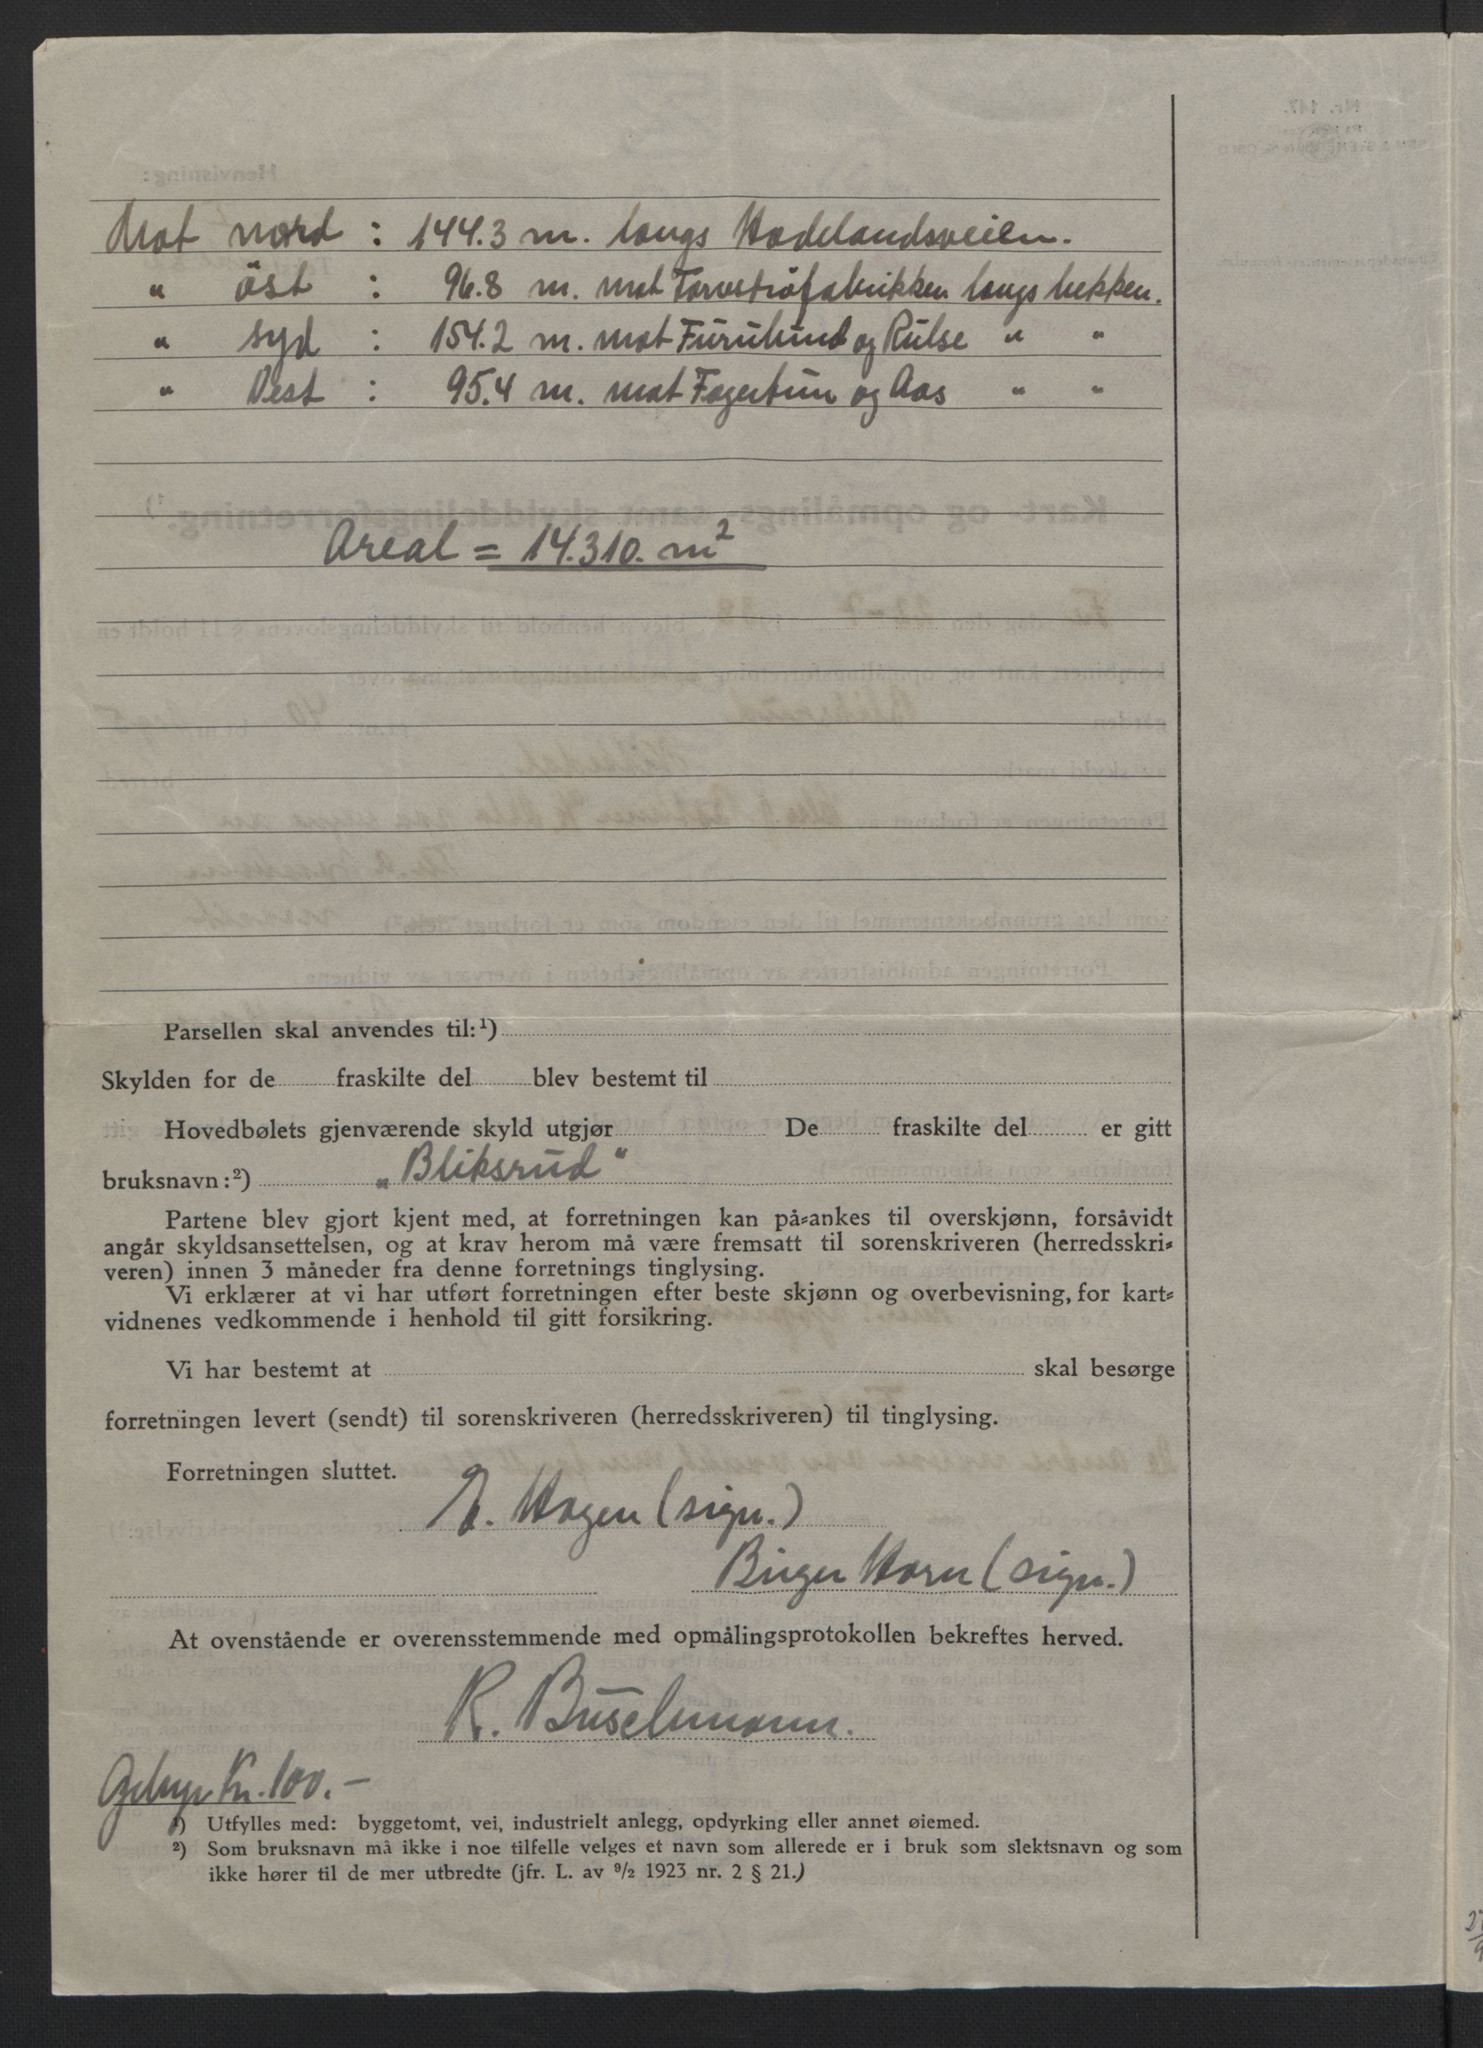 Mot nord : 144.3 m. langs Hadelandsveien.
" öst : 96.8 m. mot Torvströfabrikken langs bekken.
" syd : 154.2 m. mot Furulund og Rulse " "
" Vest : 95.4 m. mot Fagertun og Aas " "
Areal = 14.310. m²
Parsellen skal anvendes til:¹)
Skylden for de fraskilte del blev bestemt til
Hovedbølets gjenværende skyld utgjør De fraskilte del er gitt
bruksnavn:²) „Bliksrud"
Partene blev gjort kjent med, at forretningen kan på-ankes til overskjønn, forsåvidt
angår skyldsansettelsen, og at krav herom må være fremsatt til sorenskriveren (herredsskri-
veren) innen 3 måneder fra denne forretnings tinglysing.
Vi erklærer at vi har utført forretningen efter beste skjønn og overbevisning, for kart-
vidnenes vedkommende i henhold til gitt forsikring.
Vi har bestemt at skal besørge
forretningen levert (sendt) til sorenskriveren (herredsskriveren) til tinglysing.
Forretningen sluttet.
E. Hagen (sign.)
Birger Horn (sign.)
At ovenstående er overensstemmende med opmålingsprotokollen bekreftes herved.
R. Buschmann.
Gebyr Kr. 100.-
¹) Utfylles med: byggetomt, vei, industrielt anlegg, opdyrking eller annet øiemed.
²) Som bruksnavn må ikke i noe tilfelle velges et navn som allerede er i bruk som slektsnavn og som
ikke hører til de mer utbredte (jfr. L. av 9/2 1923 nr. 2 § 21.)